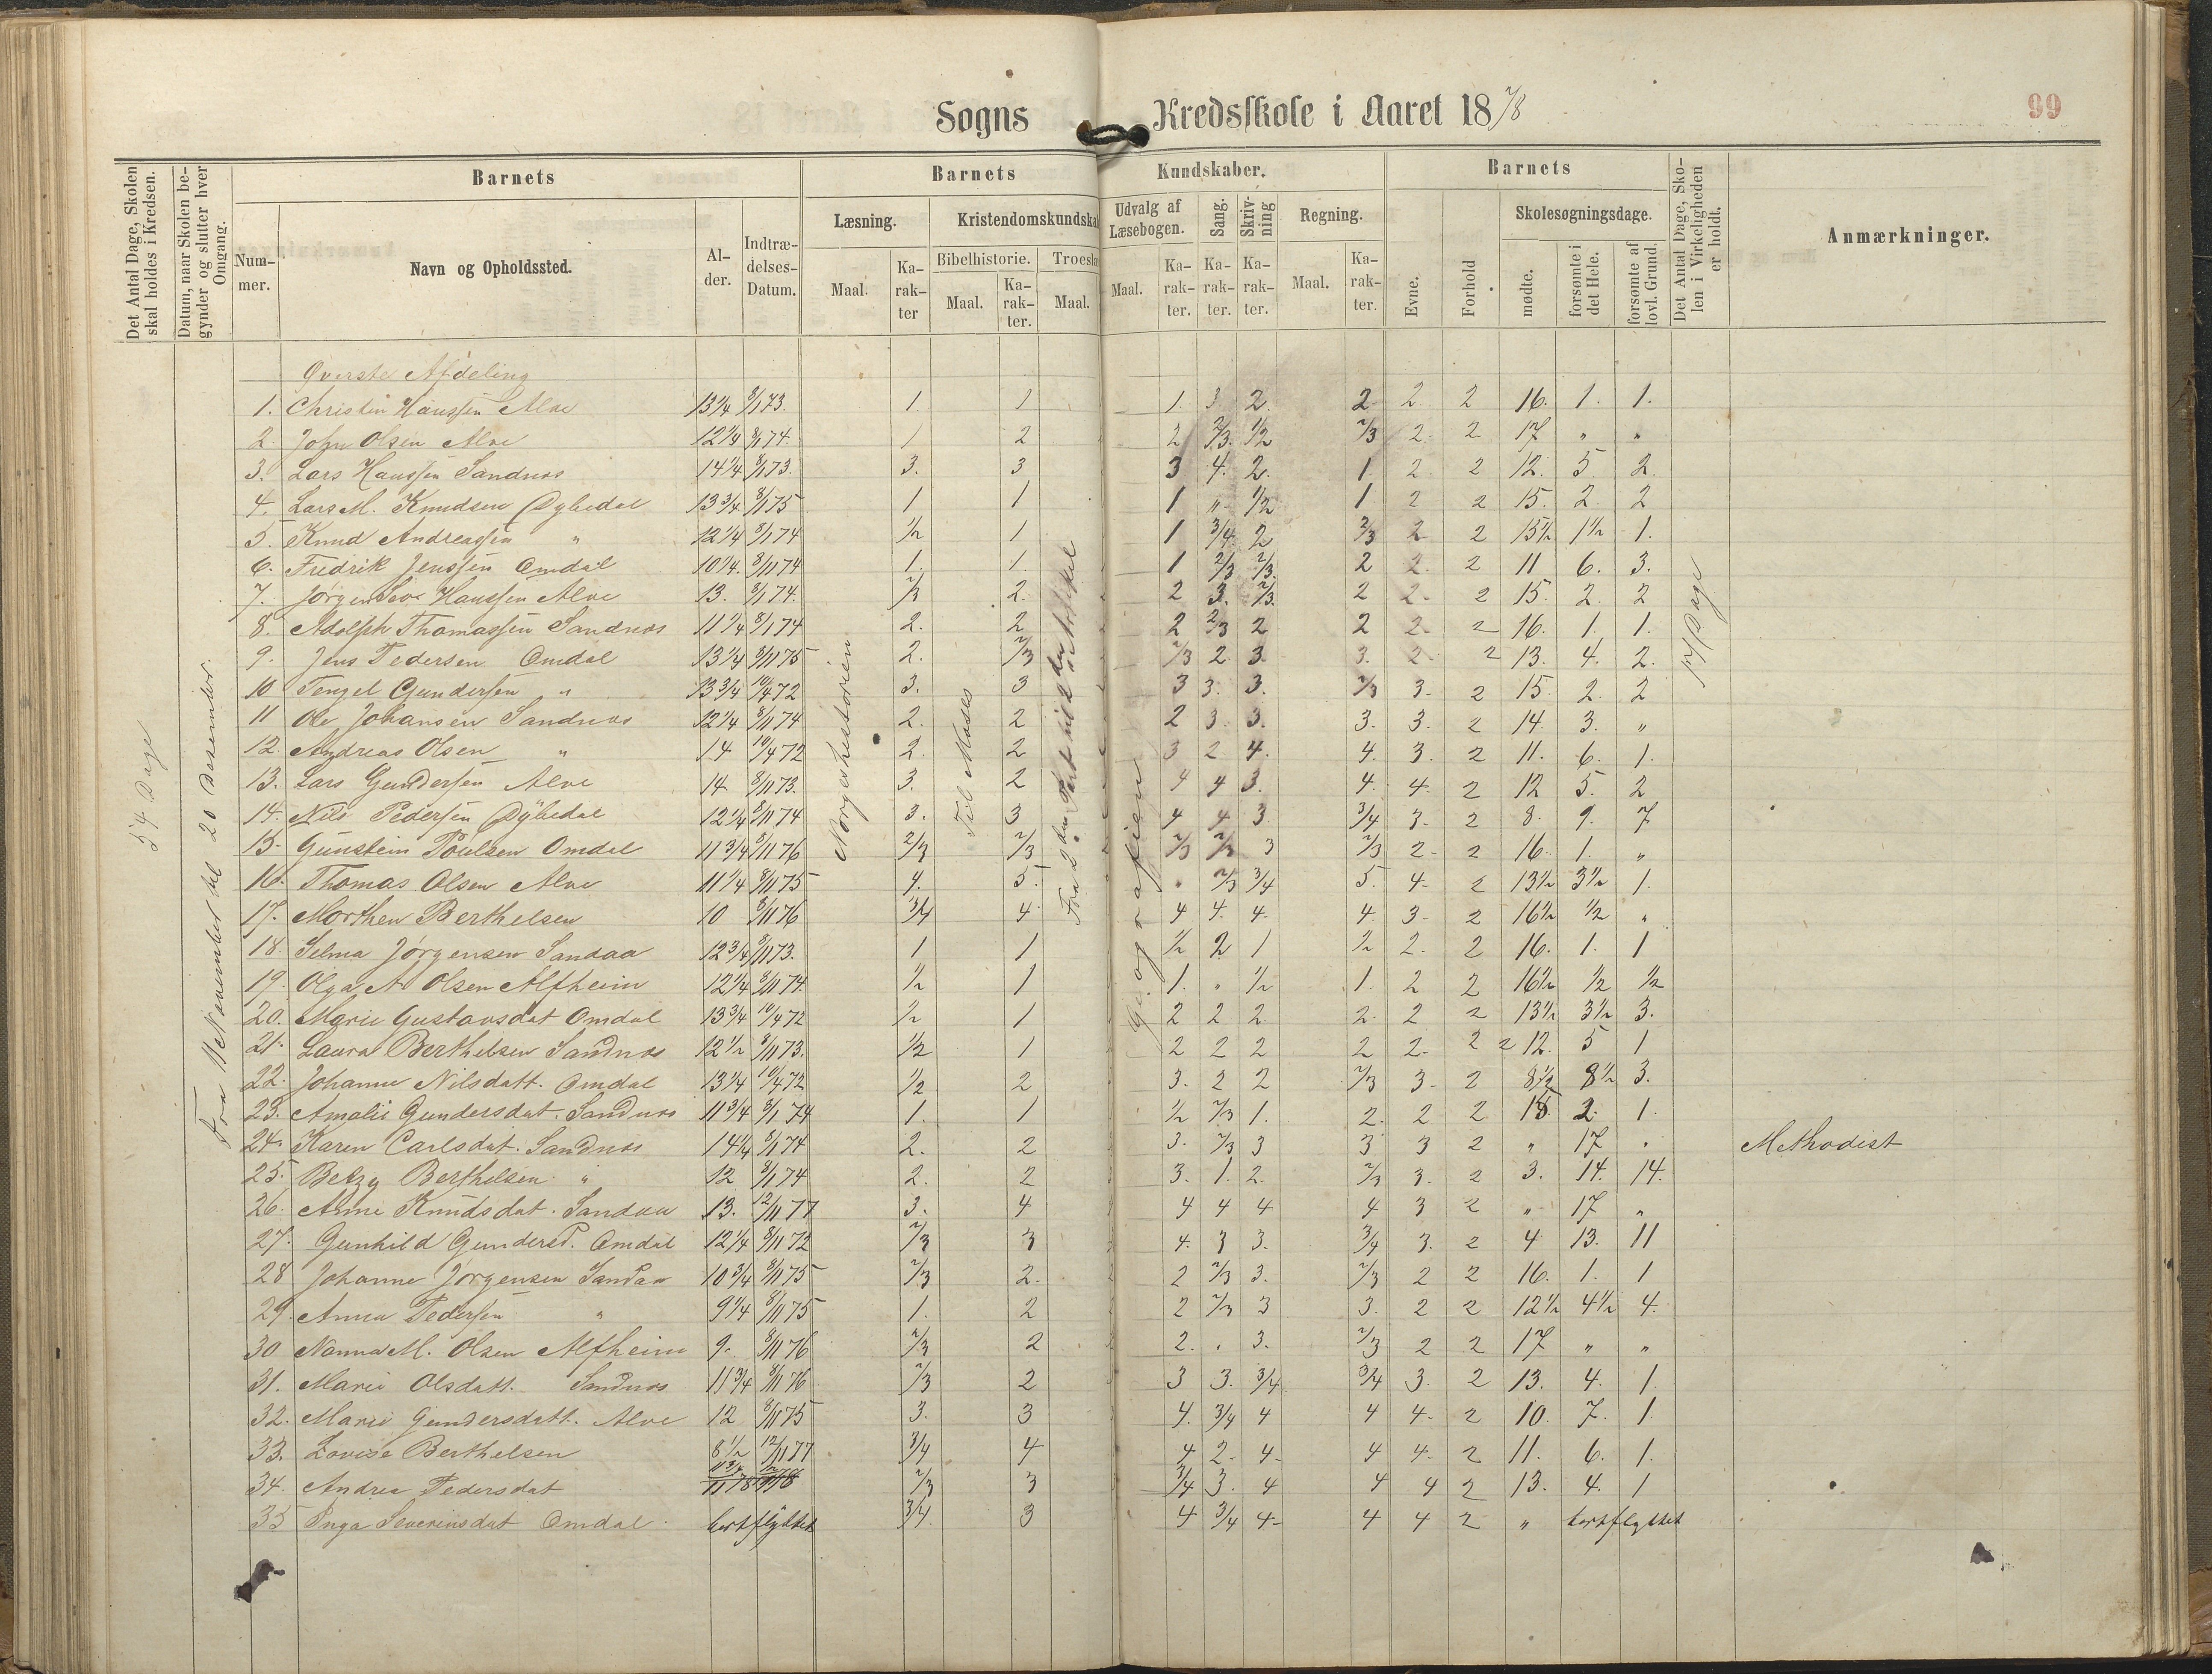 Sogns Kredsskole i Aaret 18 7/8
99
Det Antal Dage, Skolen skal holdes i Kredsen.
Datum, naar Skolen begynder og slutter hver Omgang.
Barnets
Barnets Kundskaber.
Barnets
Det Antal Dage, Skolen i Virkeligheden er holdt.
Anmærkninger.
Nummer.
Navn og Opholdssted.
Alder.
Indtrædelses-Datum.
Læsning.
Kristendomskundska
Udvalg af Læsebogen.
Sang.
Skrivning
Regning.
Evne.
Forhold
Skolesøgningsdage.
Bibelhistorie.
Troeslæ
Maal.
Karakter
Maal.
Karakter.
Maal.
Maal.
Karakter.
Karakter.
Karakter.
Maal.
Karakter.
mødte.
forsømte i det Hele.
forsømte af lovl. Grund.
54 Dage
til 20 Desember.
Norgeshistorien
Til Moses
Geografien
17 Dage
Øverste Afdeling
1. Christin Hanssen Alve 13 1/4 8/1 73. 1. 1 1. 3 2. 2 2 2 16. 1. 1.
2. John Olsen Alve 12 1/4 8/1 74. 1 2 2 2/3. 1/2 2/3 2. 2 17 " "
3. Lars Hanssen Sandnes 14 1/4 8/1 73. 3. 3 3 4. 2. 1 2 2 12. 5 2.
4. Lars M. Knudsen Dybedal 13 3/4 8/1 75 1 1 1 " 1/2 1 2 2 15. 2. 2
5. Knud Andreassen " 12 1/4 8/1 74 1/2 1 1 3/4 2 2/3 2 2 15 1/2 1 1/2 1.
6. Fredrik Jenssen Omdal 10 1/4. 8/11 74 1. 1. 1 2/3 2/3. 2 2. 2 11 6. 3.
7. Jørgen Hanssen Alve 13. 8/1 74. 2/3 2. 2 3. 2/3. 2 2. 2 15. 2. 2
8. Adolph Thomassen Sandnes 11 1/4 8/1 74 2. 2 2 2/3 2 2 2. 2 16. 1. 1.
9. Jens Pedersen Omdal 13 1/4 8/11 75 2. 2/3 2/3 2 3. 3. 2. 2 13. 4. 2.
10 Tengel Gundersen " 13 3/4 10/4 72 3. 3 3 3. 3. 2/3 3. 2 15. 2. 2
11 Ole Johansen Sandnes 12 1/4 8/11 74 2. 2 2 3. 3. 3. 3. 2 14. 3. "
12. Andreas Olsen " 14 10/4 72 2. 2 3 2 4. 4. 3. 2 11. 6. 1.
13. Lars Gundersen Alve 14 8/11 73. 3. 2 4 4 3. 4. 4. 2 12 5. 2
14. Nils Pedersen Dybedal 12 1/4 8/11 74 3. 3 4 4 3 3/4 3. 2 8. 9. 7
15. Gunstein Poulsen Omdal 11 3/4 8/11 76 2/3 2/3 2/3 2/3 3 2/3 2. 2 16. 1. "
16. Thomas Olsen Alve 11 1/4 8/11 75 4. 5. " 2/3 3/4 5. 4. 2 13 1/2 3 1/2 1.
17. Morthen Berthelsen 10 8/11 76 3/4 4 4 4. 4. 4. 3. 2 16 1/2 1/2 "
18. Selma Jørgensen Sandaa 12 3/4 8/11 73. 1 1 1/2 2 1 1/2 2. 2 16. 1. 1
19. Olga A Olsen Alfheim 12 1/4 8/11 74. 1/2 1 1. " 1/2 1. 2 2 16 1/2 1/2 1/2
20. Marie Gustavsdat Omdal 13 3/4 10/4 72 1/2 1 2 2 2 2. 2 2 13 1/2 3 1/2 3.
21. Laura Berthelsen Sandnes 12 1/2 8/11 73. 1/2 1 2 2 2 2 2. 2 12. 5 1
22. Johanne Nilsdatt. Omdal 13 1/4 10/4 72 1/2 2 3. 2 2 2/3 3. 2 8 1/2 8 1/2 3.
23. Amalie Gundersdat. Sandnes 11 3/4 8/1 74 1. 1 1/2 2/3 1. 2. 2 2 15 2. 1.
24. Karen Carlsdat. Sandnes 14 1/4 8/1 74 2. 2 3. 2/3 3 3 3 2 " 17 " Methodist
25. Betzy Berthelsen " 12 8/1 74 2. 2 3. 1. 2. 2/3 3. 2 3. 14. 14.
26. Anne Knudsdat. Sandaa 13. 12/11 77 3. 4 4 4 4 4 3 2 " 17 "
27. Gunhild Gundersd. Omdal 12 1/4 8/11 72 2/3 3 4. 3 3. 3/4 3. 2 4 13. 11
28 Johanne Jørgensen Sandaa 10 3/4 8/11 75 2/3 2. 2 2/3 3. 2/3 2 2 16. 1. 1
29. Anna Pedersen " 9 1/4 8/11 75 1. 2 2 2/3 3 3. 2 2 12 1/2 4 1/2 4.
30 Nanna M. Olsen Alfheim 9. 8/11 76 2/3 2 2. " 3. 2/3 2 2 17 " "
31. Marie Olsdatt. Sandnes 11 3/4 8/11 76 2/3 2 3 3. 3/4 3/4 3. 2 13. 4. 1.
32. Marie Gundersdatt. Alve 12 8/11 75 3. 3 4. 3/4 4 4 4. 2 10. 7. 1.
33. Lovise Berthelsen 8 1/2 12/11 77 3/4 4 4 2. 4. 4 4. 2 11. 6. 1.
34. Andrea Pedersdat 2/3 3 3/4 3. 4 4 4 2 13. 4. 1
35 Inga Severinsdat Omdal. bortflyttet 3/4. 3 4 3/4 4. 4 4 2 " bortflyttet